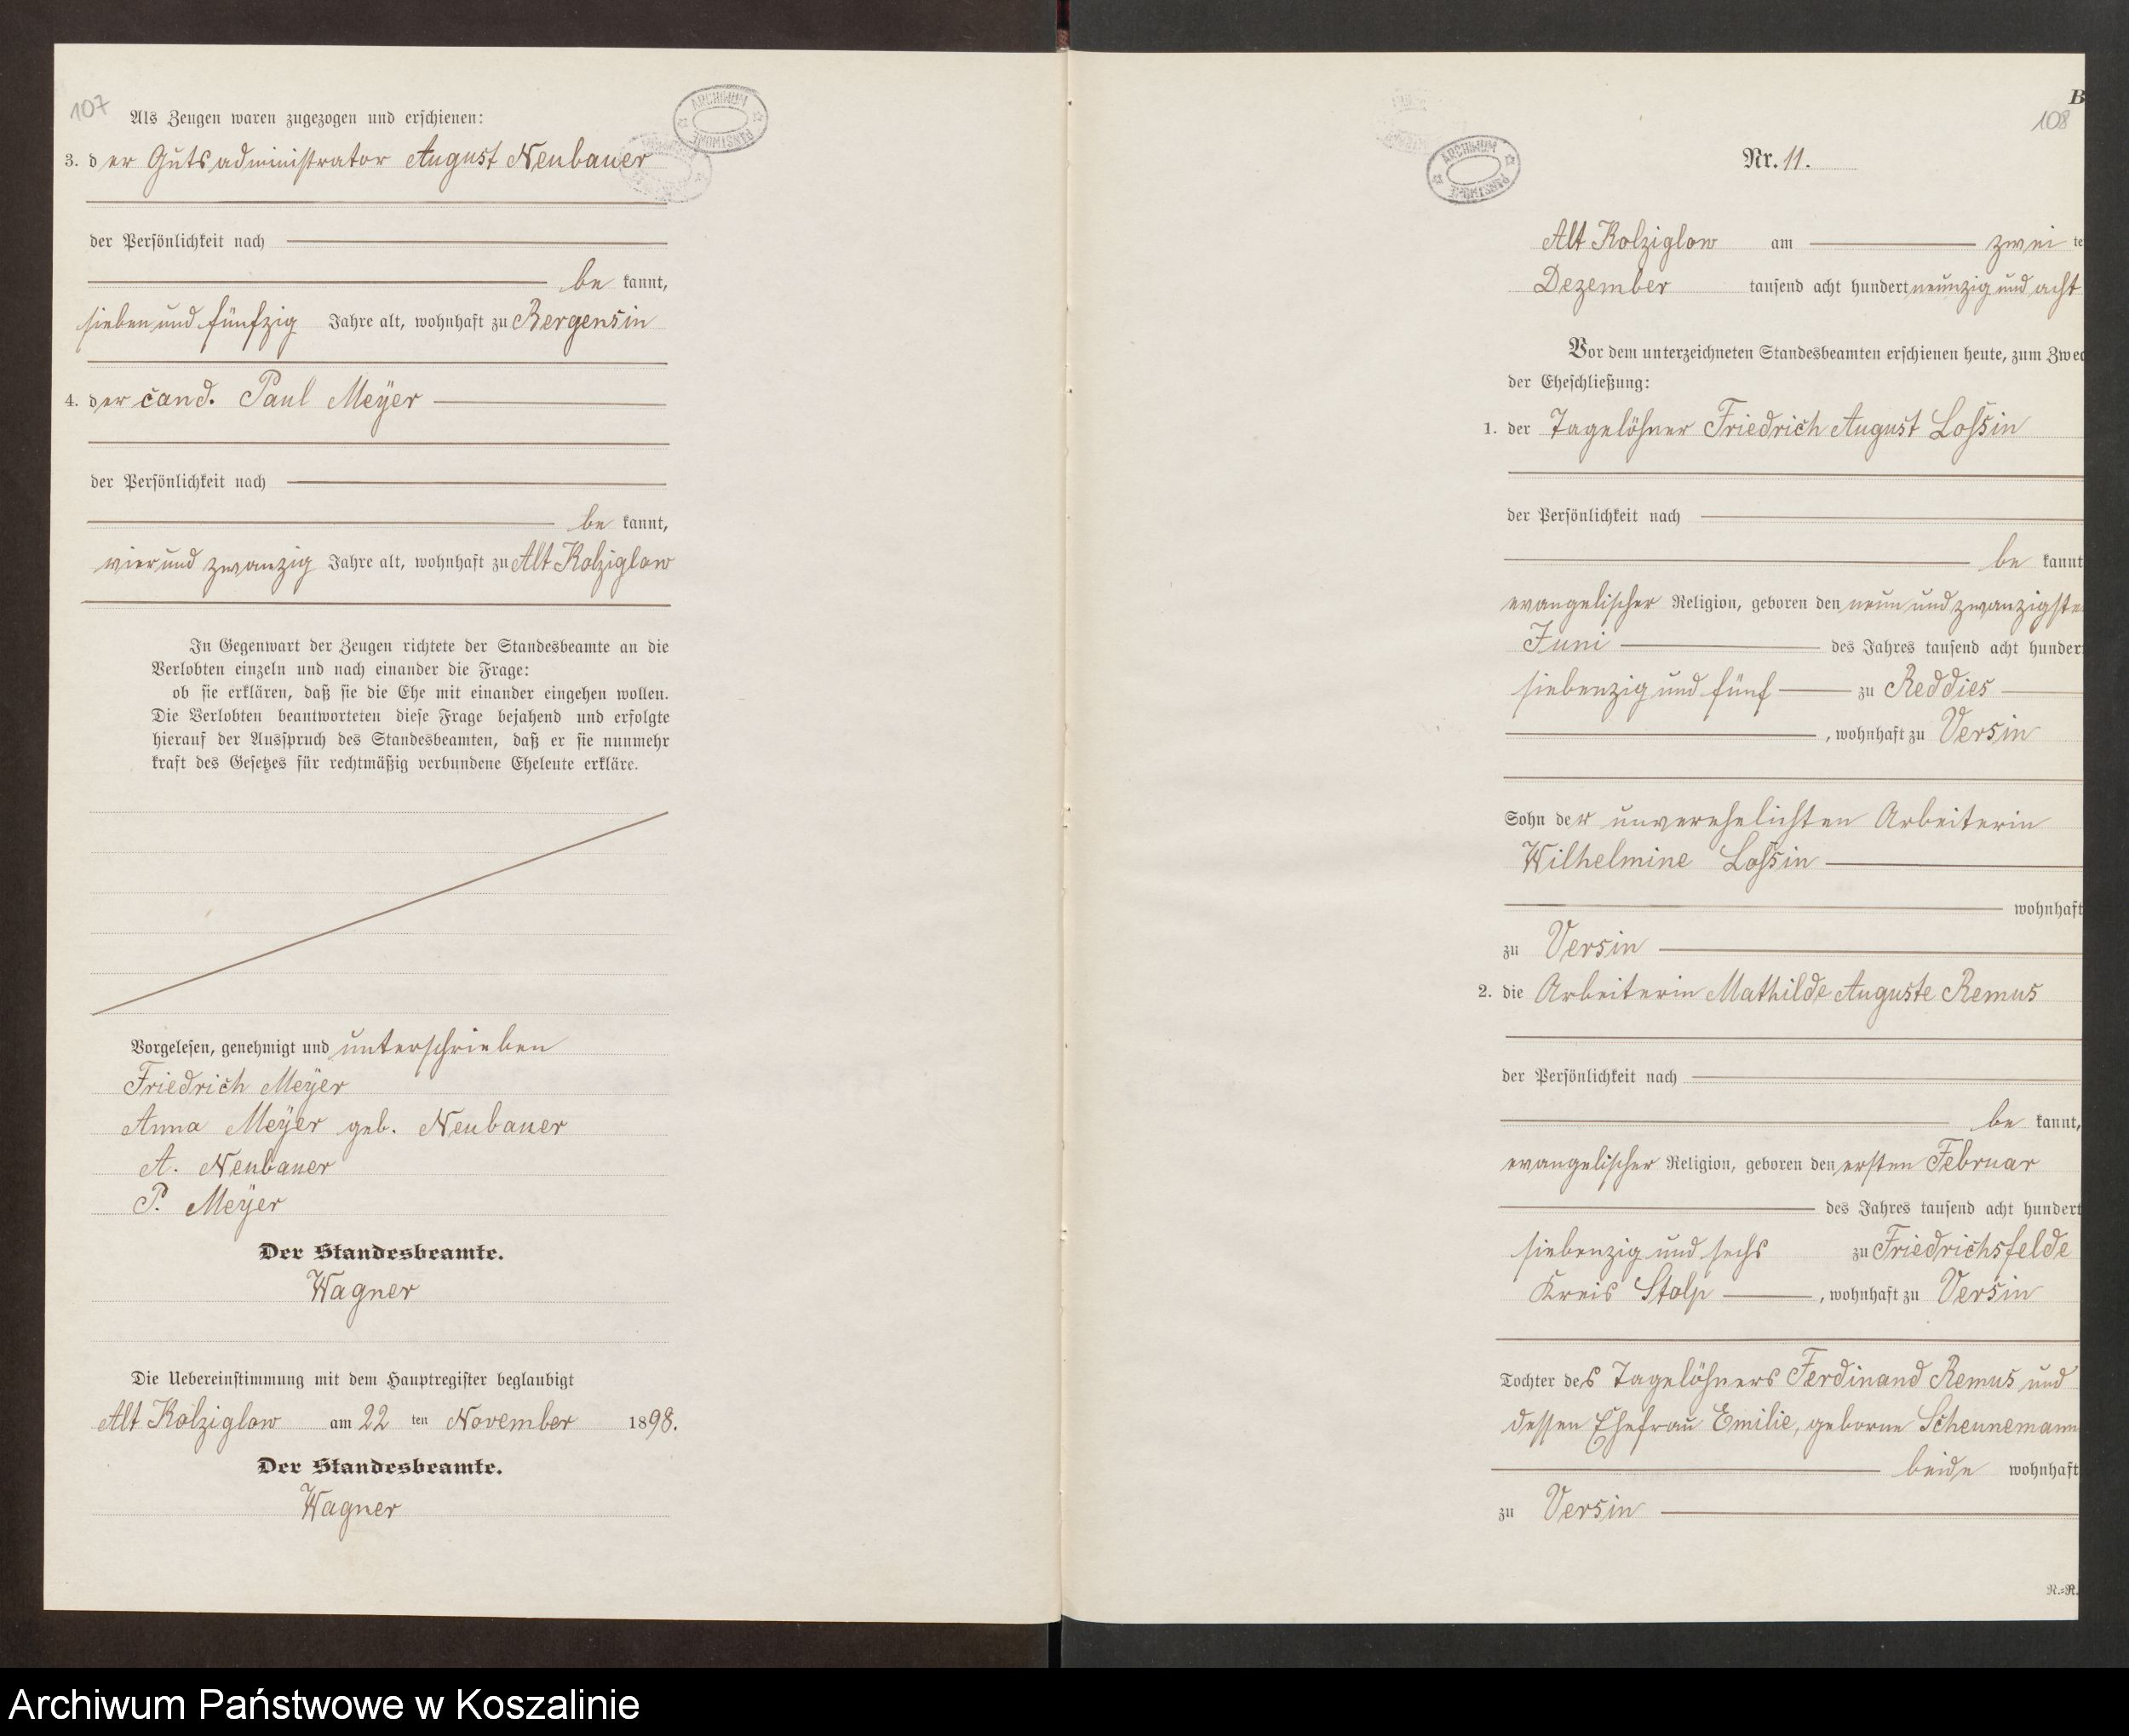 107
Als Zeugen waren zugezogen und erschienen:
3. der Gutsadministrator August Neubauer
der Persönlichkeit nach
be kannt,
sieben und fünfzig Jahre alt, wohnhaft zu Bergensin
4. der cand. Paul Meÿer
der Persönlichkeit nach
be kannt,
vier und zwanzig Jahre alt, wohnhaft zu Alt Kolziglow
In Gegenwart der Zeugen richtete der Standesbeamte an die
Verlobten einzeln und nach einander die Frage:
ob sie erklären, daß sie die Ehe mit einander eingehen wollen.
Die Verlobten beantworteten diese Frage bejahend und erfolgte
hierauf der Ausspruch des Standesbeamten, daß er sie nunmehr
kraft des Gesetzes für rechtmäßig verbundene Eheleute erkläre.
Vorgelesen, genehmigt und unterschrieben
Friedrich Meÿer
Anna Meÿer geb. Neubauer
A. Neubauer
P. Meÿer
Der Standesbeamte.
Wagner
Die Uebereinstimmung mit dem Hauptregister beglaubigt
Alt Kolziglow am 22 ten November 1898.
Der Standesbeamte.
Wagner
ARCHIWUM PAŃSTWOWE
B
108
ARCHIWUM PAŃSTWOWE
Nr. 11.
Alt Kolziglow am zwei te
Dezember tausend acht hundert neunzig und acht
Vor dem unterzeichneten Standesbeamten erschienen heute, zum Zwec
der Eheschließung:
1. der Tagelöhner Friedrich August Lossin
der Persönlichkeit nach
be kannt
evangelischer Religion, geboren den neun und zwanzigste
Juni des Jahres tausend acht hunder
siebenzig und fünf zu Reddies
, wohnhaft zu Versin
Sohn der unverehelichten Arbeiterin
Wilhelmine Lossin
wohnhaft
zu Versin
2. die Arbeiterin Mathilde Auguste Remus
der Persönlichkeit nach
be kannt,
evangelischer Religion, geboren den ersten Februar
des Jahres tausend acht hundert
siebenzig und sechs zu Friedrichsfelde
Kreis Stolp , wohnhaft zu Versin
Tochter des Tagelöhners Ferdinand Remus und
dessen Ehefrau Emilie, geborne Scheunemann
beide wohnhaft
zu Versin
R.=R.
Archiwum Państwowe w Koszalinie